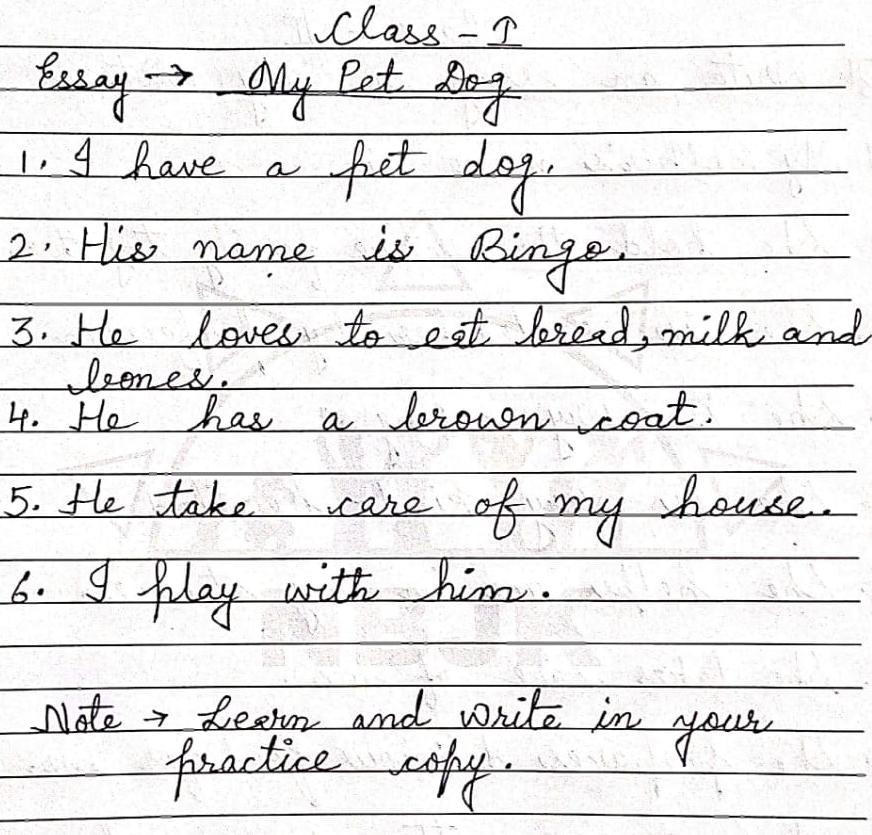 Class - I
Essay → My Pet Dog
1. I have a pet dog.
2. His name is Bingo.
3. He loves to eat bread, milk and
bones.
4. He has a brown coat.
5. He take care of my house.
6. I play with him.
Note → Learn and write in your
practice copy.